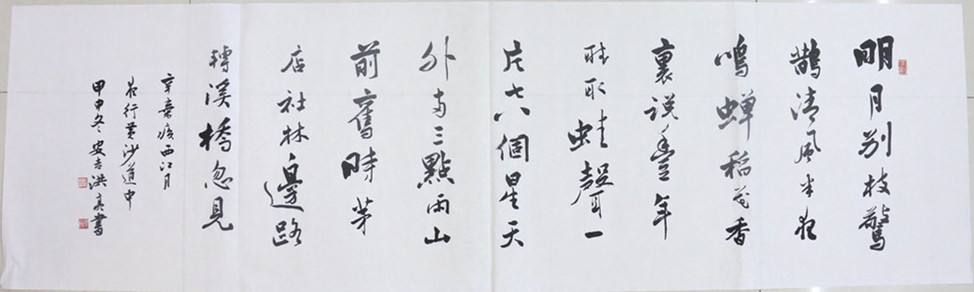 明月别枝驚
鵲清風半夜
鳴蟬稻花香
裏説豐年
聽取蛙聲一
片七八個星天
外兩三點雨山
前舊時茅
店社林邊路
轉溪橋忽見
辛棄疾西江月
夜行黄沙道中
甲申冬安吉洪亮書